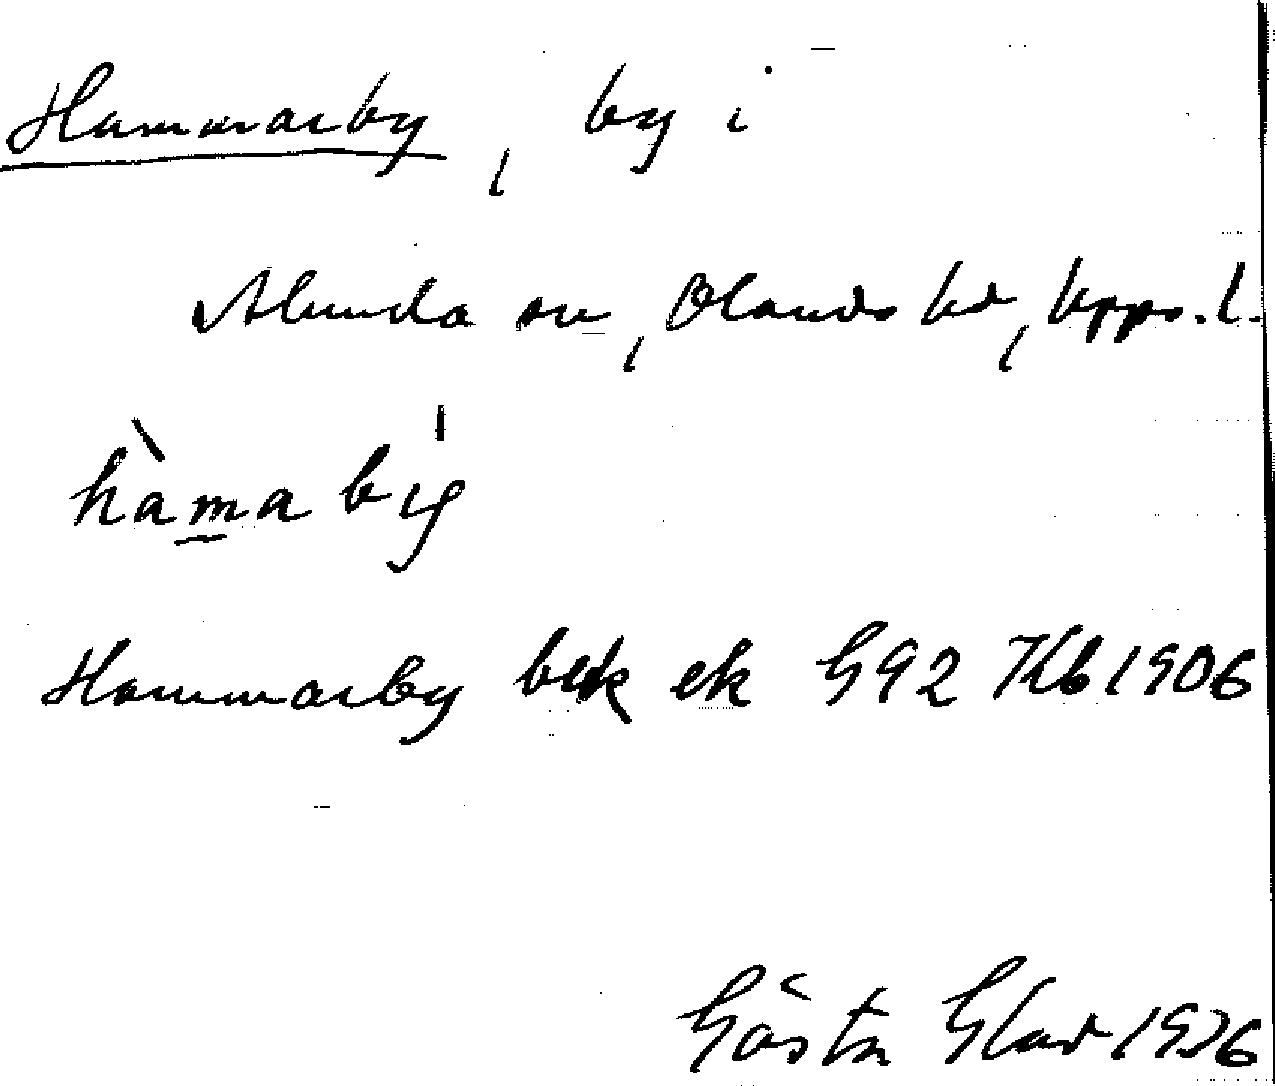 Hammarby, by i
Alunda sn, Olands hd, Upps. l.
hàmabý
Hammarby bek ek G92 Kb 1906
Gösta Glad 1936